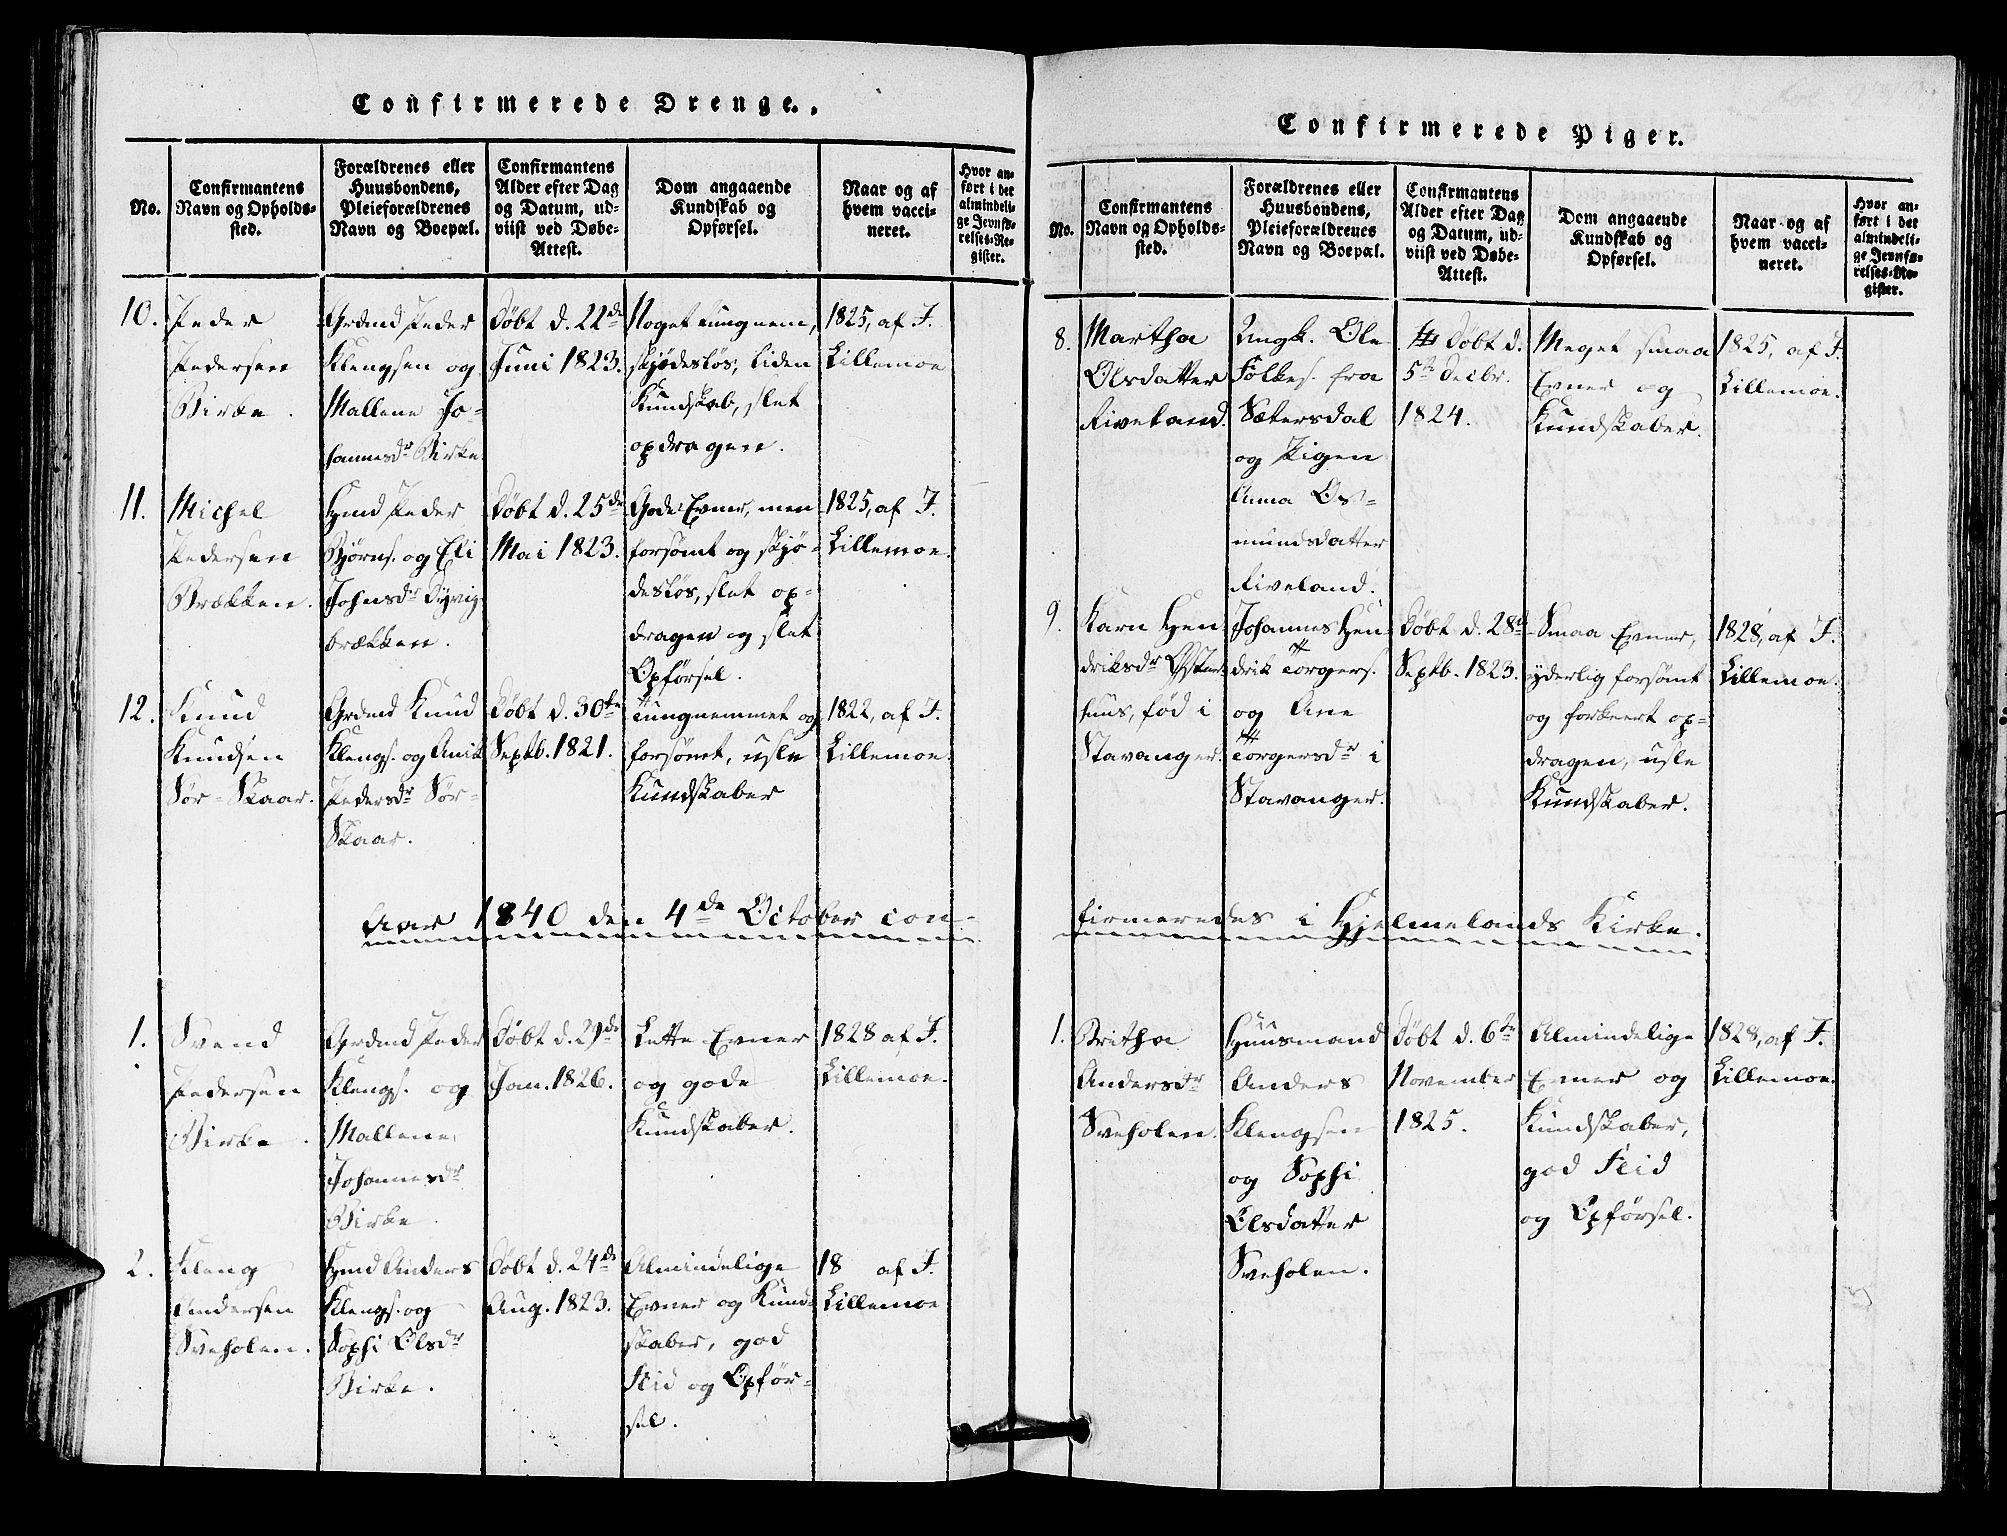 Confirmerede Drenge.
No.
Confirmantens
Navn og Opholds-
sted.
Forældrenes eller
Huusbondens,
Pleieforældrenes
Navn og Boepæl.
Confirmantens
Alder efter Dag
og Datum, ud-
viist ved Døbe-
Attest.
Dom angaaende
Kundskab og
Opførsel.
Naar og af
hvem vacci-
neret.
Hvor an-
ført i det
almindeli-
ge Jevnfø-
relses-Re-
gister.
10.
Peder
Pedersen
Birke.
Grdmd Peder
Klengsen og
Mallene Jo-
hannesdr Birke
Døbt d. 22de
Juni 1823.
Noget tungnem,
skjødesløs, liden
Kundskab, slet
opdragen.
1825, af J.
Lillemoe
11.
Michel
Pedersen
Brækken.
Hmd Peder
Bjørns. og Eli
Johnsdr Dyvig-
brækken.
Døbt d. 25de
Mai 1823.
Gode Evner, men
forsømt og skjø-
desløs, slet op-
dragen og slet
Opførsel.
1825, af J.
Lillemoe.
12.
Knud
Knudsen
Sør-Skaar.
Grdmd Knud
Klengs. og Anit
Pedersdr Sør-
Skaar.
Døbt d. 30te
Septb. 1821.
Tungnemmet og
forsømt, usle
Kundskaber
1822, af J.
Lillemoe.
Aar 1840 den 4de October con-
1.
Svend
Pedersen
Birke.
Grdmd Peder
Klengs. og
Mallene
Johannesdr
Birke.
Døbt d. 29de
Jan. 1826.
Lette Evner
og gode
Kundskaber.
1828 af J.
Lillemoe.
2.
Kleng
Andersen
Sveholen.
Hmd Anders
Klengs. og
Sophi Olsdr
Birke.
Døbt d. 24de
Aug. 1823.
Almindelige
Evner og Kund-
skaber, god
Flid og Opfør-
sel.
18 af J.
Lillemoe
Confirmerede Piger.
No.
Confirmantens
Navn og Opholds-
sted.
Forældrenes eller
Huusbondens,
Pleieforældrenes
Navn og Boepæl.
Confirmantens
Alder efter Dag
og Datum, ud-
viist ved Døbe-
Attest.
Dom angaaende
Kundskab og
Opførsel.
Naar og af
hvem vacci-
neret.
Hvor an-
ført i det
almindeli-
ge Jevnfø-
relses-Re-
gister.
8.
Martha
Olsdatter
Riveland.
Ungk. Ole
Folkes. fra
Sætersdal
og Pigen
Anna Os-
mundsdatter
Riveland.
Døbt d.
5te Decbr.
1824.
Meget smaa
Evner og
Kundskaber.
1825, af J.
Lillemoe.
9.
Karn Hen-
driksdr
huus, fød i
Stavanger.
Johannes Hen-
drik Torgers.
og Ane
Torgersdr i
Stavanger.
Døbt d. 28de
Septb. 1823.
Smaa Evner,
yderlig forsømt
og forkeert op-
dragen, usle
Kundskaber.
1828, af J.
Lillemoe.
firmeredes i Hjelmelands Kirke.
1.
Britha
Andersdr
Sveholen.
Huusmand
Anders
Klengsen
og Sophi
Olsdatter
Sveholen.
Døbt d. 6te
November
1825.
Almindelige
Evner og
Kundskaber,
god Flid
og Opførsel.
1828, af J.
Lillemoe.